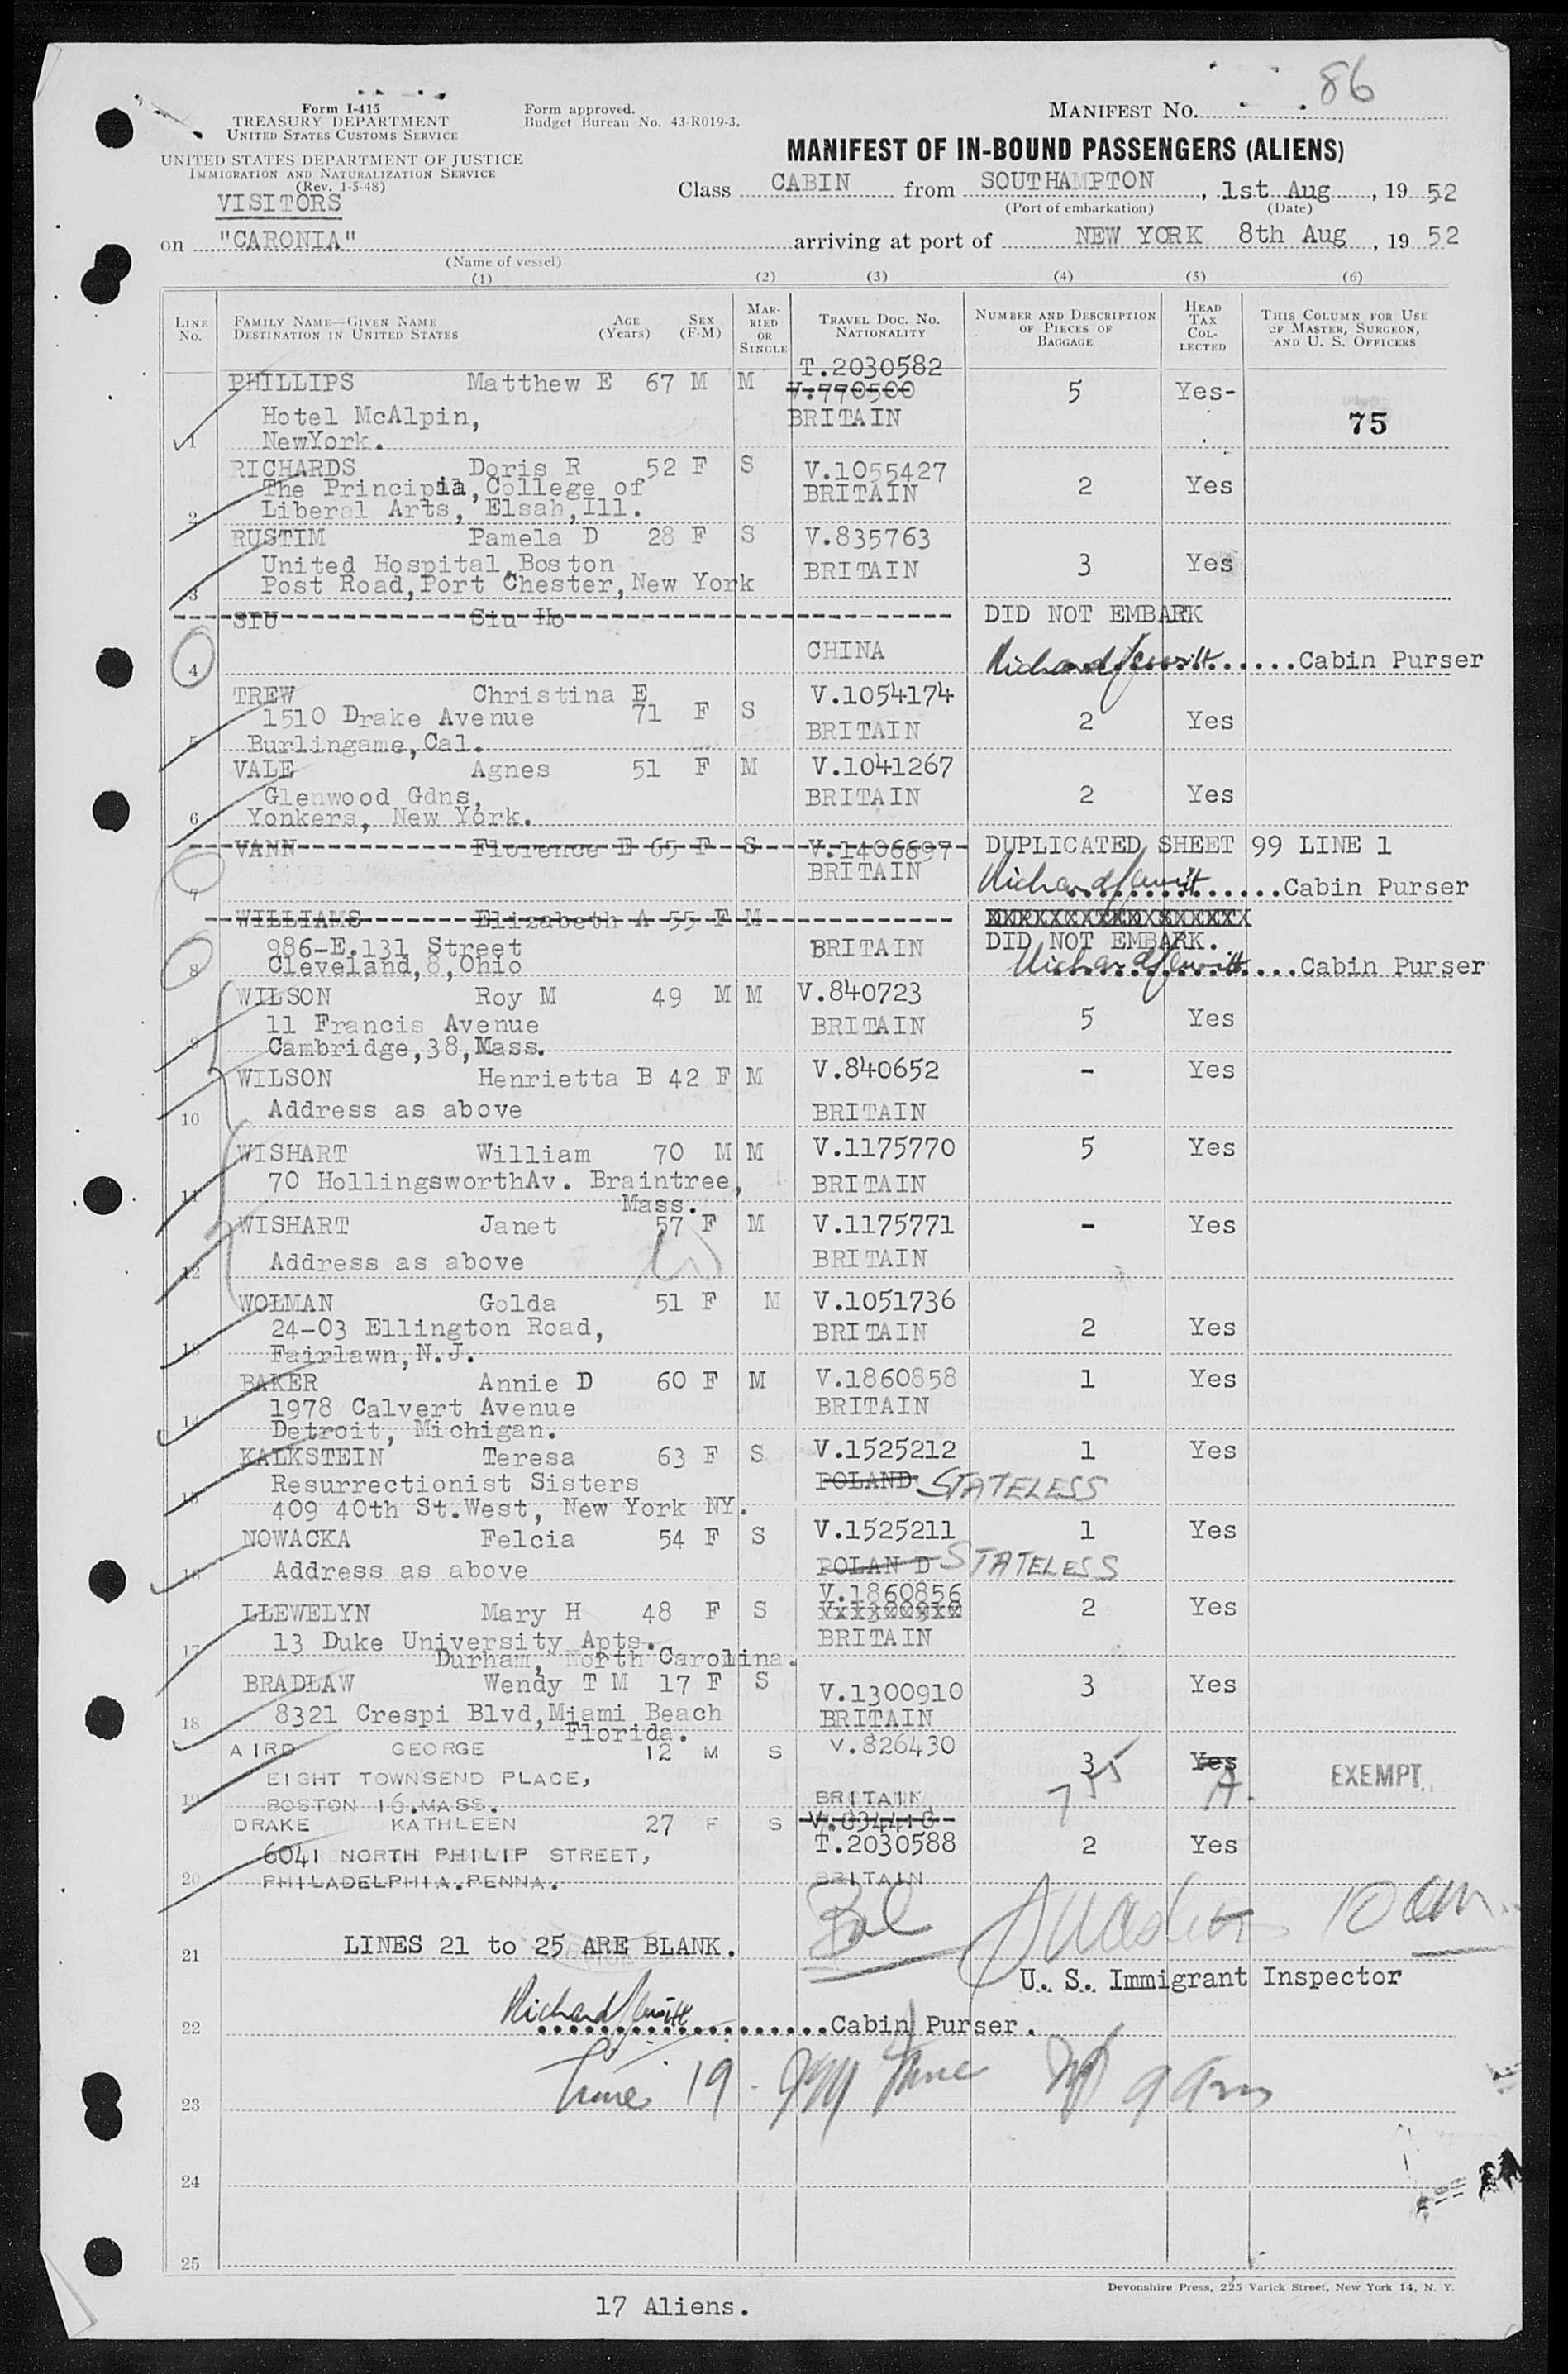 86
Form I-415
TREASURY DEPARTMENT
UNITED STATES CUSTOMS SERVICE
Form approved.
Budget Bureau No. 43-R019-3.
MANIFEST NO.
UNITED STATES DEPARTMENT OF JUSTICE
IMMIGRATION AND NATURALIZATION SERVICE
(Rev. 1-5-48)
MANIFEST OF IN-BOUND PASSENGERS (ALIENS)
VISITORS
Class CABIN from SOUTHAMPTON, 1st Aug, 1952
(Port of embarkation) (Date)
on "CARONIA" arriving at port of NEW YORK 8th Aug, 1952
(Name of vessel)
(1) (2) (3) (4) (5) (6)
LINE No. FAMILY NAME—GIVEN NAME DESTINATION IN UNITED STATES AGE (Years) SEX (F-M) MARRIED OR SINGLE TRAVEL DOC. NO. NATIONALITY NUMBER AND DESCRIPTION OF PIECES OF BAGGAGE HEAD TAX COLLECTED THIS COLUMN FOR USE OF MASTER, SURGEON, AND U. S. OFFICERS
T.2030582
PHILLIPS Matthew E 67 M M V.770500 5 Yes-
Hotel McAlpin, BRITAIN 75
1 NewYork.
RICHARDS Doris R 52 F S V.1055427
The Principia, College of BRITAIN 2 Yes
2 Liberal Arts, Elsah, Ill.
RUSTIM Pamela D 28 F S V.835763
United Hospital, Boston BRITAIN 3 Yes
3 Post Road, Port Chester, New York
SIU Siu Ho DID NOT EMBARK
4 CHINA Cabin Purser
TREW Christina E V.1054174
1510 Drake Avenue 71 F S BRITAIN 2 Yes
5 Burlingame, Cal.
VALE Agnes 51 F M V.1041267
Glenwood Gdns, BRITAIN 2 Yes
6 Yonkers, New York.
VANN Florence E 65 F S V.1406697 DUPLICATED SHEET 99 LINE 1
7 BRITAIN Cabin Purser
WILLIAMS Elizabeth A 55 F M
986-E.131 Street BRITAIN DID NOT EMBARK.
8 Cleveland, 8, Ohio Cabin Purser
WILSON Roy M 49 M M V.840723
11 Francis Avenue BRITAIN 5 Yes
9 Cambridge, 38, Mass.
WILSON Henrietta B 42 F M V.840652 - Yes
10 Address as above BRITAIN
WISHART William 70 M M V.1175770 5 Yes
11 70 HollingsworthAv. Braintree, BRITAIN
Mass.
WISHART Janet 57 F M V.1175771 - Yes
12 Address as above BRITAIN
WOLMAN Golda 51 F M V.1051736
24-03 Ellington Road, BRITAIN 2 Yes
13 Fairlawn, N.J.
BAKER Annie D 60 F M V.1860858 1 Yes
1978 Calvert Avenue BRITAIN
14 Detroit, Michigan.
KALKSTEIN Teresa 63 F S V.1525212 1 Yes
Resurrectionist Sisters POLAND STATELESS
15 409 40th St. West, New York NY.
NOWACKA Felcia 54 F S V.1525211 1 Yes
16 Address as above POLAND STATELESS
V.1860856
LLEWELYN Mary H 48 F S 2 Yes
17 13 Duke University Apts. BRITAIN
Durham, North Carolina.
BRADLAW Wendy T M 17 F S V.1300910 3 Yes
18 8321 Crespi Blvd, Miami Beach BRITAIN
Florida.
AIRD GEORGE 12 M S V.826430 3 Yes EXEMPT
EIGHT TOWNSEND PLACE,
19 BOSTON 16. MASS. BRITAIN A.
DRAKE KATHLEEN 27 F S V.834418
6041 NORTH PHILIP STREET, T.2030588 2 Yes
20 PHILADELPHIA. PENNA. BRITAIN
10 am.
21 LINES 21 to 25 ARE BLANK.
U. S. Immigrant Inspector
22 Cabin Purser.
23
24
25
Devonshire Press, 225 Varick Street, New York 14, N. Y.
17 Aliens.